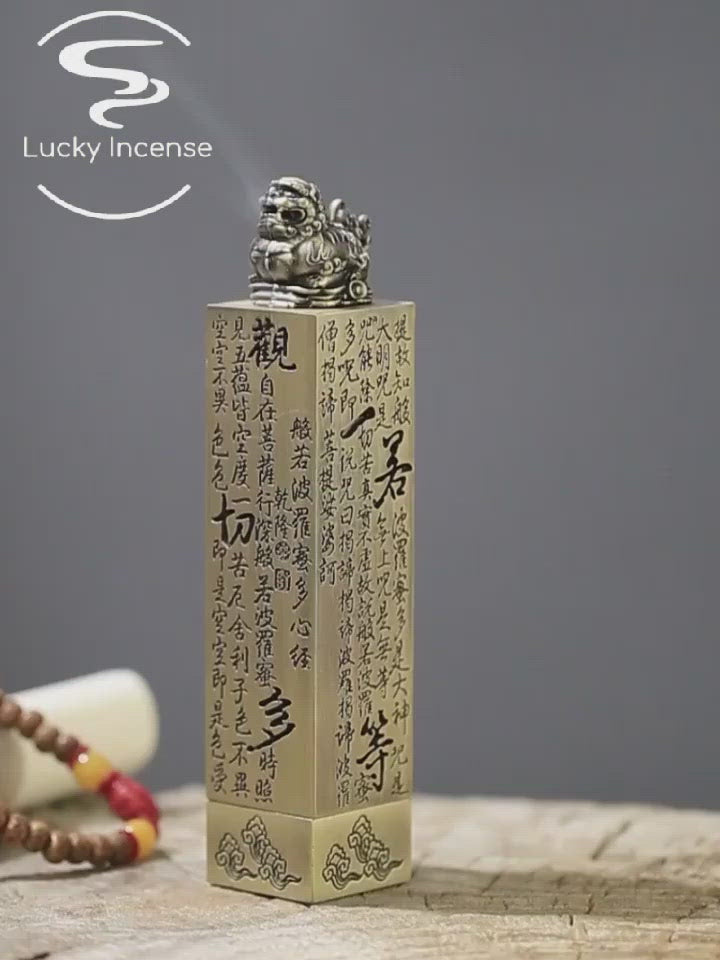 Lucky Incense
般若波羅蜜多心经
乾隆
觀自在菩薩行深般若波羅蜜多時照
見五蕴皆空度一切苦厄舍利子色不異
空空不異色色即是空空即是色受
提故知般若波羅蜜多是大神咒是
大明咒是無上咒是無等等
咒能除一切苦真實不虛故說般若波羅蜜
多咒即說咒曰揭諦揭諦波羅揭諦波羅
僧揭諦菩提娑婆訶